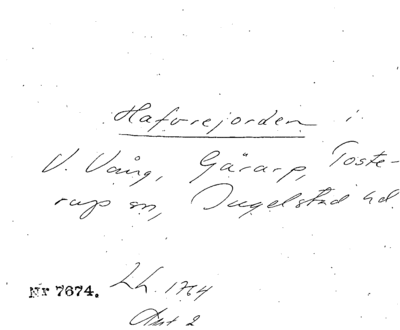 Hafvrejorden i
V. Vång, Gärarp, Toste-
rup sn, Ingelstad hd.
Nr 7674. LL. 1764
Akt 2